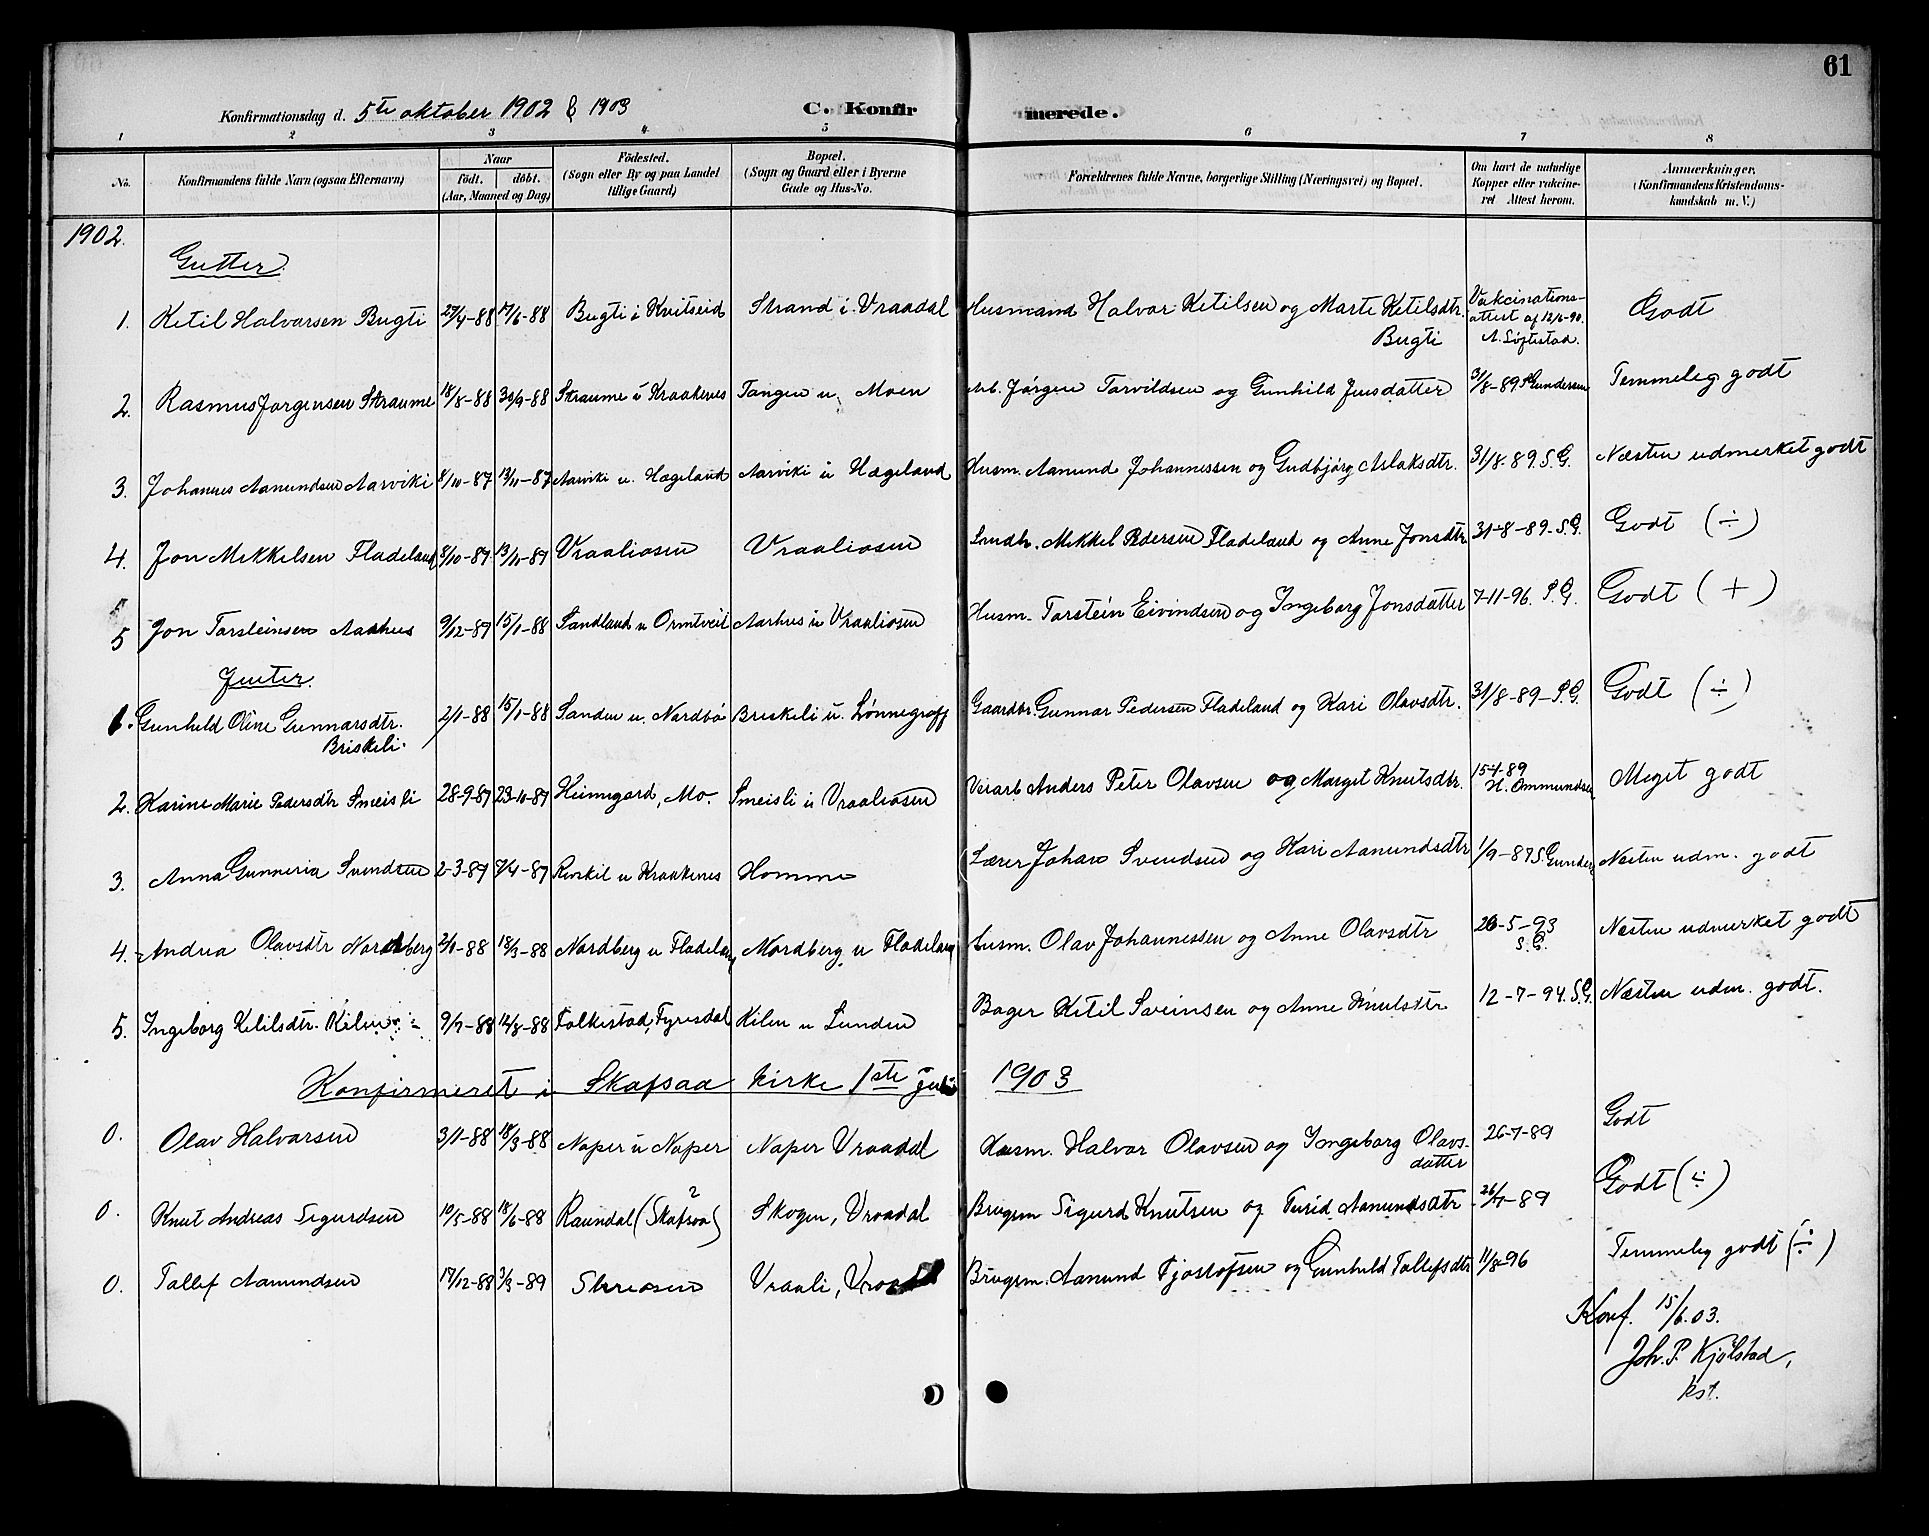 61
Konfirmationsdag d. 5te oktober 1902 & 1903 C. Konfirmerede.
1 2 3 4 5 6 7 8
No. Konfirmandens fulde Navn (ogsaa Efternavn) Naar födt. döbt. (Aar, Maaned og Dag) Födested. (Sogn eller By og paa Landet tillige Gaard) Bopæl. (Sogn og Gaard eller i Byerne Gade og Hus-No. Forældrenes fulde Navne, borgerlige Stilling (Næringsvei) og Bopæl. Om havt de naturlige Kopper eller vakcineret Attest herom. Anmærkninger. (Konfirmandens Kristendomskundskab m. V.)
1902.
Gutter
1. Ketil Halvorsen Bugti 27/4-88 17/6-88 Bugti i Kvitseid Strand i Vraadal Husmand Halvor Ketilsen og Marte Ketilsdtr. Bugti Vakcinationsattest af 12/6-90. A. Søftestad. Godt
2. Rasmus Jørgensen Straume 18/8-88 30/9-88 Straume u Kraakenes Tangen u. Moen Arb. Jørgen Tarvildsen og Gunhild Jensdatter 31/8-89 S Gundersen Temmelig godt
3. Johannes Aamundsen Aarviki 8/10-87 13/11-87 Aarviki u. Hægeland Aarviki u Hægeland Husm. Aanund Johannessen og Gudbjørg Aslaksdtr. 31/8-89. S.G. Næsten udmerket godt
4. Jon Mekkelsen Fladeland 8/10-87 13/11-87 Vraaliosen Vraaliosen Smdh. Mekkel Pedersen Fladeland og Anne Jonsdtr 31-8-89-S.G. Godt (÷)
5 Jon Torsteinsen Aarhus 9/12-87 15/1-88 Sandland u Ormtveit Aarhus u Vraaliosen Husm. Torstein Eivindsen og Ingeborg Jonsdatter 7-11-96. S.G. Godt (+)
Jenter.
1. Gunhild Oline Gunnarsdtr. Briskeli. 2/1-88 15/1-88 Sanden u. Nordbø Briskeli u. Lønnegrav Gaardbr. Gunnar Pedersen Fladeland og Kari Olavsdtr. 31/8-89-S.G. Godt (÷)
2. Karine Marie Pedersdtr Smeisli 28-9-87 23-10-87 Heimgard, Mo. Smeisli u Vraaliosen Veiarb Anders Peter Olavsen og Marget Knutsdtr. 15-4-89 H. Ommundsen Meget godt
3. Anna Gunneria Svendsen 2-3-87 7/4-87 u Kraakenes Homme Lærer Johan Svendsen og Kari Aanundsdtr 1/9-87 S. Gunder. Nesten udm. godt
4. Andrea Olavsdtr Nordberg 2/1-88 18/3-88 Nordberg u Fladeland Nordberg u Fladeland Husm. Olav Johannessen og Anne Olavsdtr 26-5-93 S.G. Næsten udmerket godt
5. Ingeborg Ketilsdtr. Kilen 9/7-88 12/8-88 Folkestad, Fyresdal Kilen u Lunden Bager Ketil Sveinsen og Anne Knutsdtr 12-7-94. S.G. Næsten udm. godt.
Konfirmeret i Skafsaa kirke 1ste juli 1903
0. Olav Halvorsen 3/1-88 18/3-88 Naper u Naper Naper Vraadal Husm. Halvor Olavsen og Ingeborg Olavsdatter 26-7-89 Godt
0. Knut Andreas Sigurdsen 10/5-88 18/6-88 Raundal (Skafsaa?) Skogen, Vraadal Brugsm Sigurd Knutsen og Turid Aanundsdtr 26/7-89 Godt (÷)
0. Tallef Aamundsen 17/12-88 3/3-89 Vraali, Brugsm. Aanund Fjostofsen og Gunhild Tallefsdtr 11/8-96 Temmelig godt (÷)
Konf. 15/6.03.
Joh. P. Kjølstad,
kst.